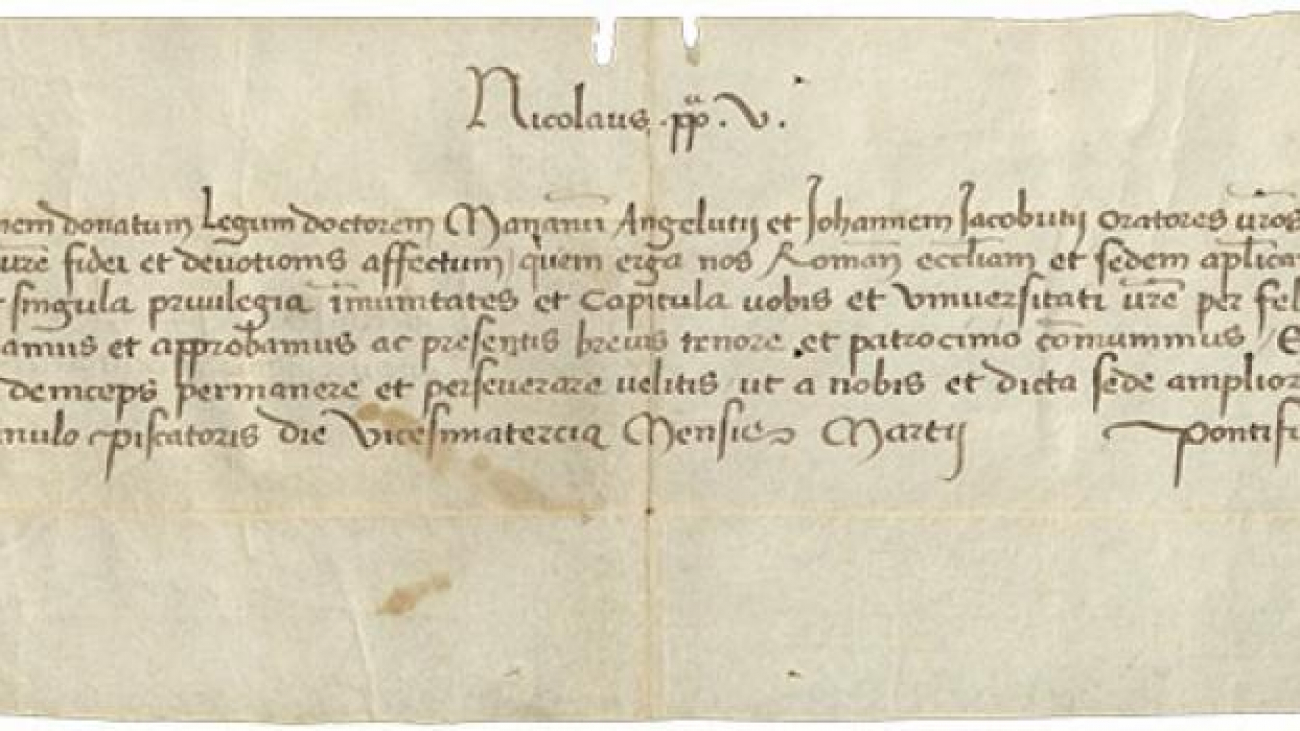 Nicolaus .pp̄. v.
nem donatum Legum doctorem Marianū Angelutij et Johannem Jacobutij oratores ur̄os
ur̄e fidei et deuotionis affectum quem erga nos Roman̄ eccl̄iam et sedem ap̄lica
singula priuilegia īmunitates et Capitula uobis et vniuersitati ur̄e per fel
amus et approbamus ac presentis breuis tenore et patrocinio cōmunimus / E
deinceps permanere et perseuerare uelitis ut a nobis et dicta sede amplior
nulo piscatoris die Vicesimatercia Mensis Martij pontifi